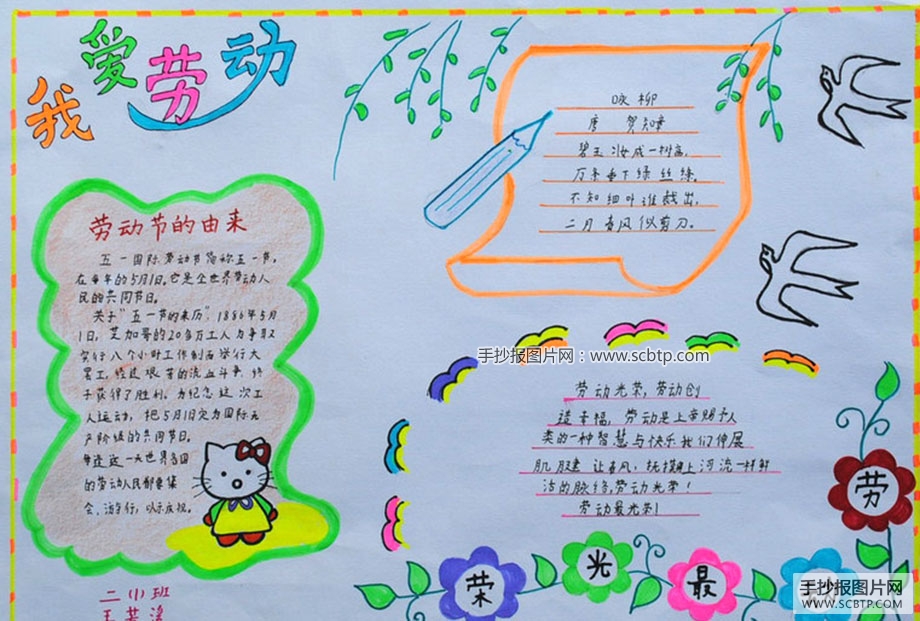 我爱劳动
劳动节的由来
五一国际劳动节简称五一节,
在每年的5月1日。它是全世界劳动人
民的共同节日。
关于“五一节的来历”:1886年5月
1日,芝加哥的20多万工人为争取
实行八个小时工作制而举行大
罢工,经过艰苦的流血斗争,终
于获得了胜利。为纪念这次工
人运动,把5月1日定为国际无
产阶级的共同节日。
每逢这一天世界各国
的劳动人民都要集
会、游行,以示庆祝。
二(1)班
咏柳
唐 贺知章
碧玉妆成一树高,
万条垂下绿丝绦。
不知细叶谁裁出,
二月春风似剪刀。
手抄报图片网:www.scbtp.com
劳动光荣,劳动创
造幸福,劳动是上帝赐予人
类的一种智慧与快乐我们伸展
肌腱 让春风,抚摸上河流一样鲜
活的脉络,劳动光荣!
劳动最光荣!
劳
最
光
荣
手抄报图片网
WWW.SCBTP.COM